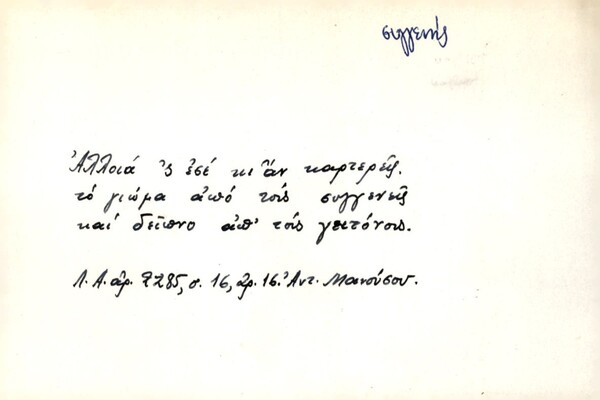 συγγενής
Ἀλλοιά 'ς ἐσέ κι ἄν καρτερῇς.
τό γιῶμα ἀπό τούς συγγενεῖς
καί δεῖπνο ἀπ' τούς γειτόνους.
Λ. Α. ἀρ. 2285, σ. 16, ἀρ. 16. Ἀντ. Μανούσου.